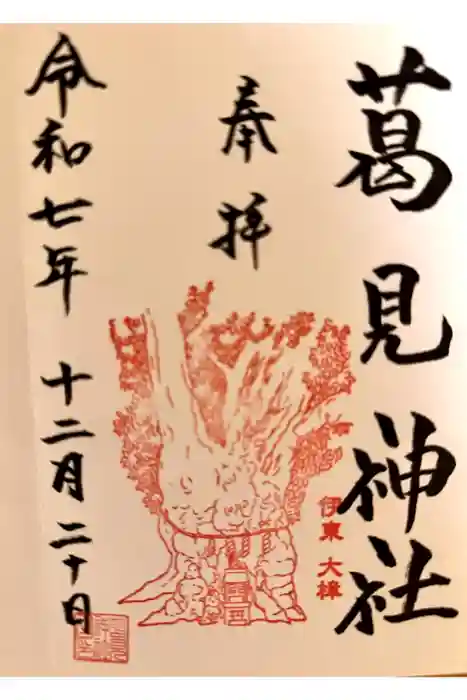 葛見神社
伊東 大樟
奉拝
令和七年 十二月二十日